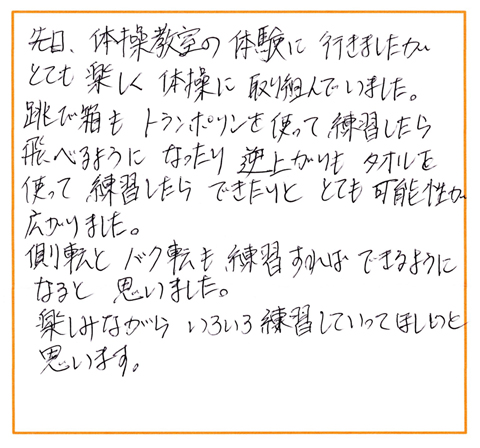 先日、体操教室の体験に行きましたが
とても楽しく体操に取り組んでいました。
跳び箱もトランポリンを使って練習したら
飛べるようになったり逆上がりもタオルを
使って練習したらできたりととても可能性が
広がりました。
側転とバク転も練習すればできるように
なると思いました。
楽しみながらいろいろ練習していってほしいと
思います。